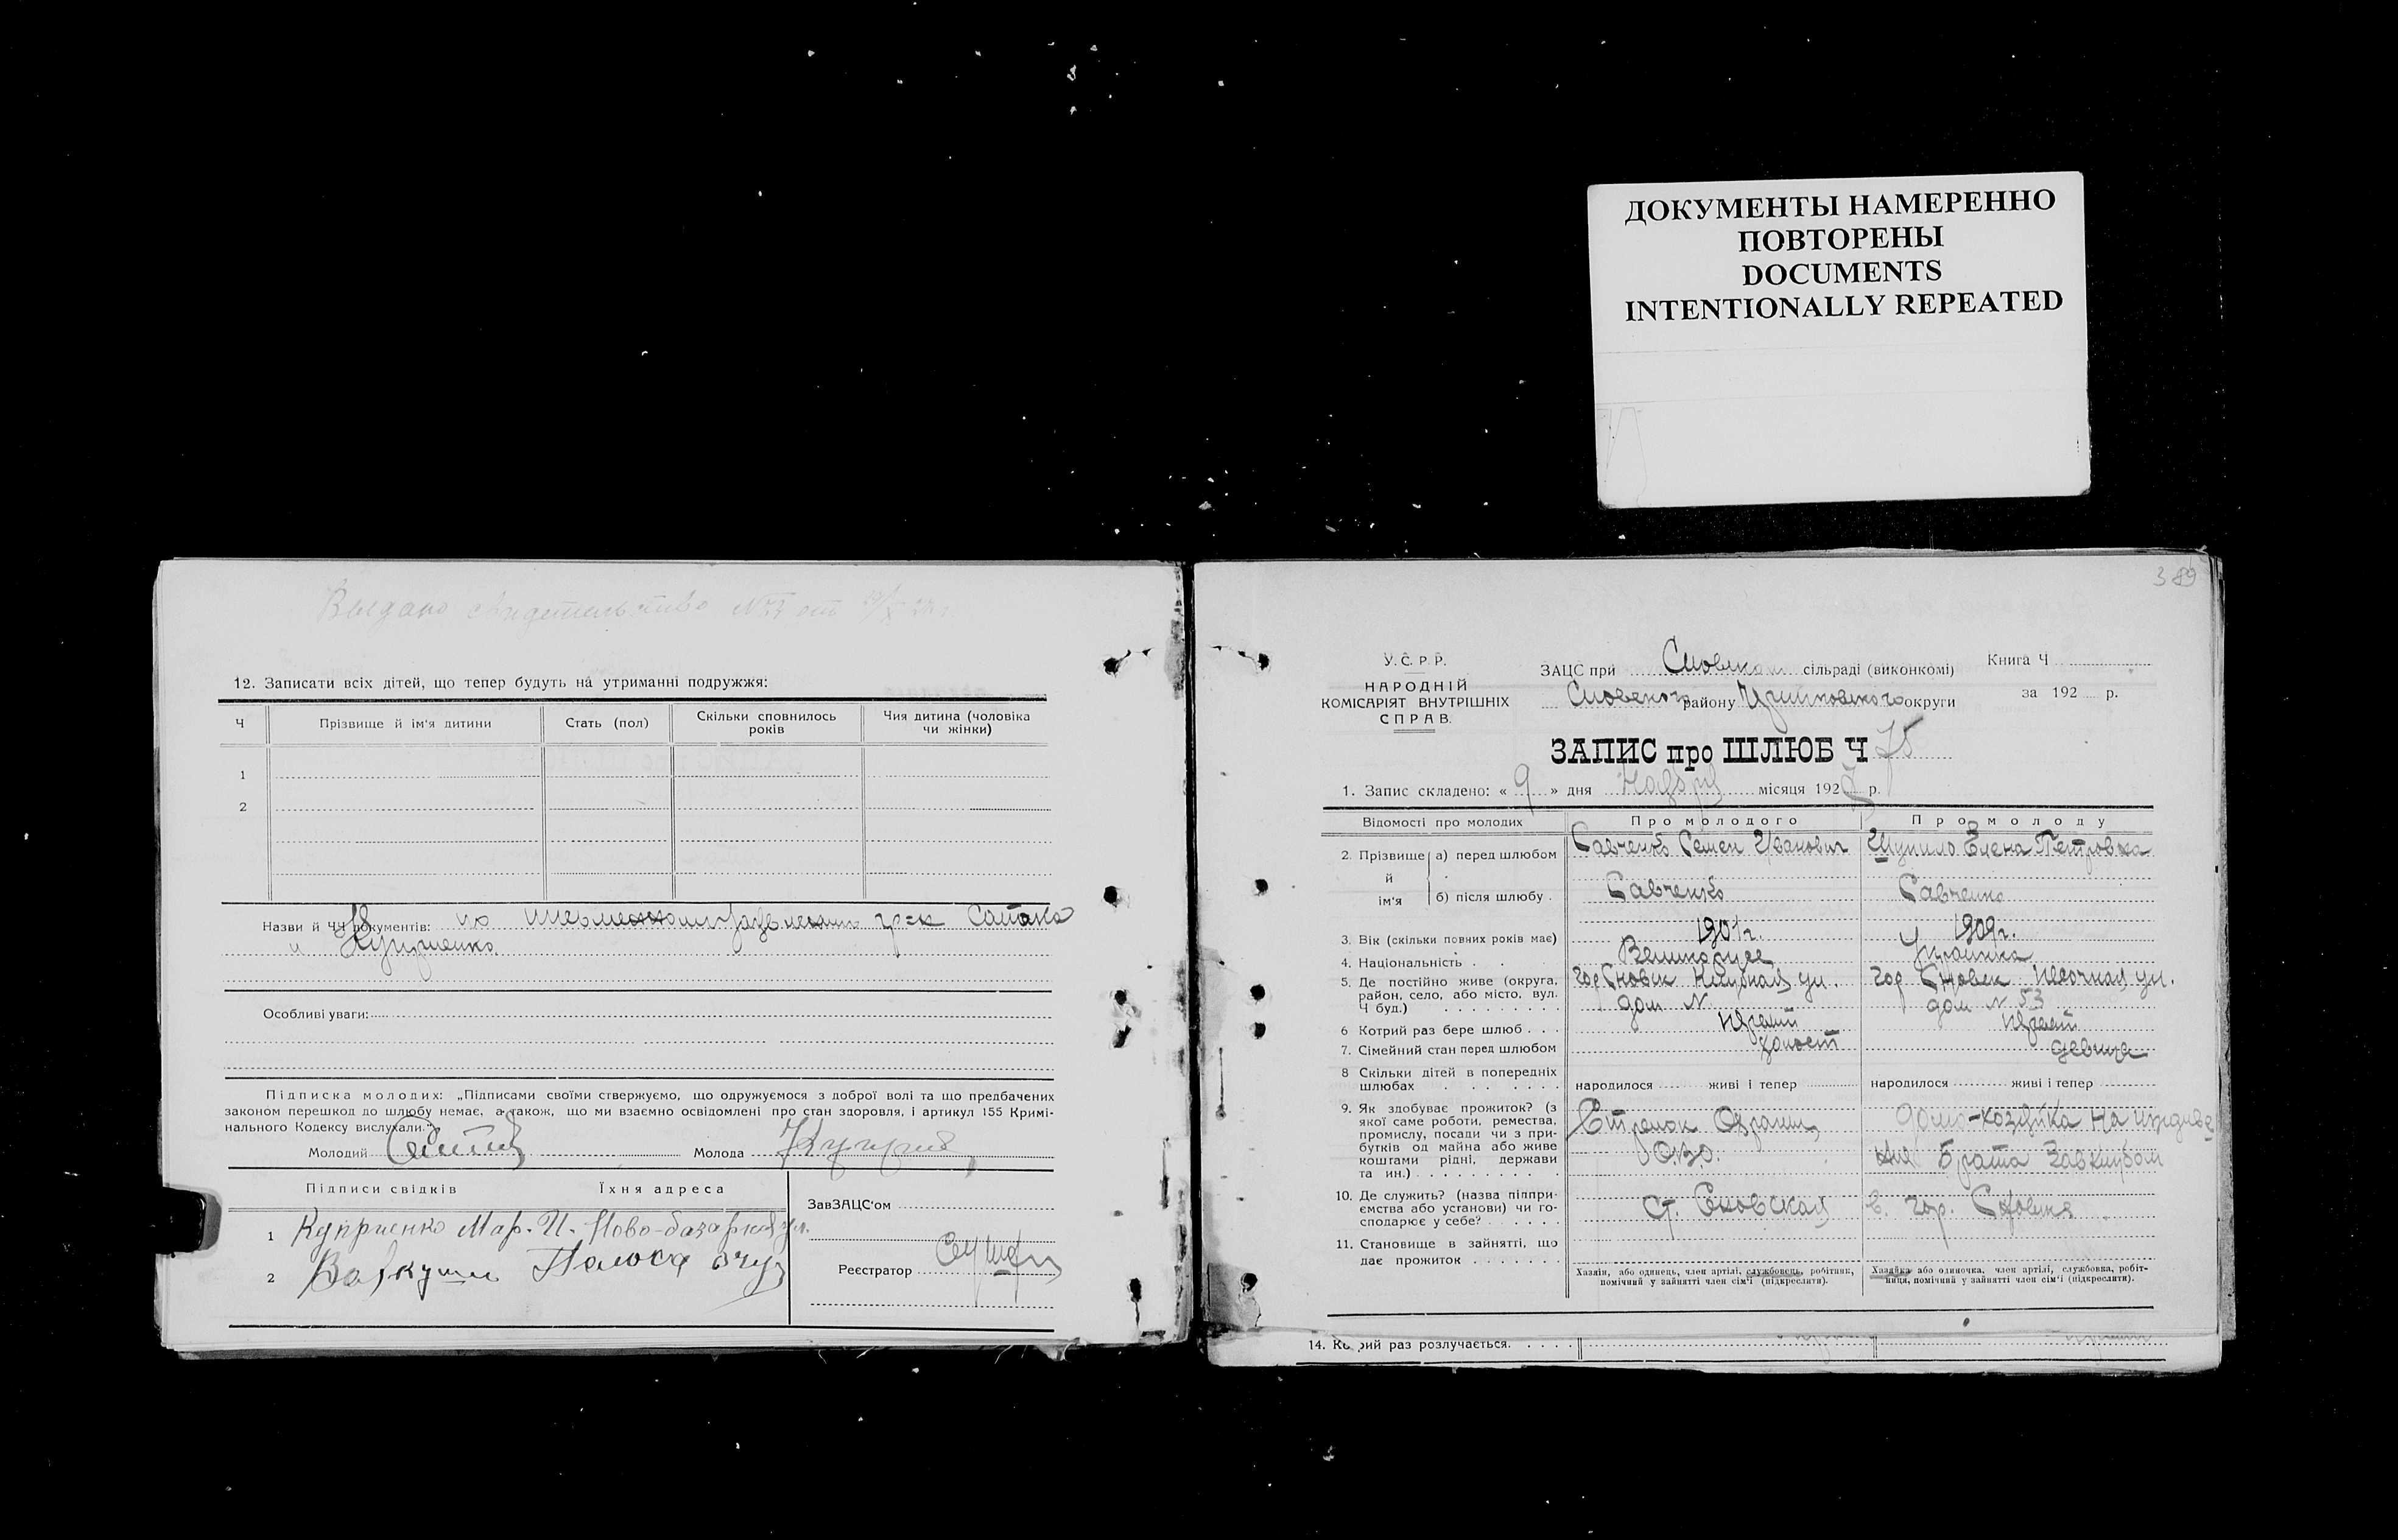 ДОКУМЕНТЫ НАМЕРЕННО
ПОВТОРЕНЫ
DOCUMENTS
INTENTIONALLY REPEATED
Выдано свидетельство № от
12. Записати всіх дітей, що тепер будуть на утриманні подружжя:
Ч Прізвище й ім'я дитини Стать (пол) Скільки сповнилось років Чия дитина (чоловіка чи жінки)
1
2
Назви й ЧЧ документів: по гр-к
и Куприенко.
Особливі уваги:
Підписка молодих: „Підписами своїми ствержуємо, що одружуємося з доброї волі та що предбачених
законом перешкод до шлюбу немає, а також, що ми взаємно освідомлені про стан здоровля, і артикул 155 Кримі-
нального Кодексу вислухали."
Молодий Молода
Підписи свідків Їхня адреса
1 Куприенко Мар. И. Ново-базарная ул.
2
ЗавЗАЦС'ом
Реєстратор
389
У. С. Р. Р.
НАРОДНІЙ
КОМІСАРІЯТ ВНУТРІШНІХ
СПРАВ.
ЗАЦС при сільраді (виконкомі)
Сновског району округи
Книга Ч
за 192 р.
ЗАПИС про ШЛЮБ Ч 75
1. Запис складено: « 9 » дня Ноября місяця 192 р.
Відомості про молодих Про молодого Про молоду
2. Прізвище й ім'я а) перед шлюбом Савченко Семен Иванович Елена Петровна
б) після шлюбу Савченко Савченко
3. Вік (скільки повних років має) 1901г. 1909г.
4. Національність Великорусс Украинка
5. Де постійно живе (округа, район, село, або місто, вул. Ч буд.) гор Сновск ул. дом № гор Сновск Песочная ул. дом № 53
6 Котрий раз бере шлюб перший
7. Сімейний стан перед шлюбом холост девица
8 Скільки дітей в попередніх шлюбах народилося живі і тепер народилося живі і тепер
9. Як здобуває прожиток? (з якої саме роботи, ремества, промислу, посади чи з прибутків од майна або живе коштами рідні, держави та ин.) Стрелок Охраны домо-хозяйка на иждиве
Брата
10. Де служить? (назва підпри-ємства або установи) чи го-сподарює у себе? ст. Сновская в. гор. Сновске
11. Становище в зайнятті, що дає прожиток
Хазяїн, або одинець, член артілі, службовець, робітник, помічний у зайнятті член сім'ї (підкреслити).
Хазяйка або одиночка, член артілі, службовка, робіт-ниця, помічний у зайнятті член сім'ї (підкреслити).
14. Котрий раз розлучається.